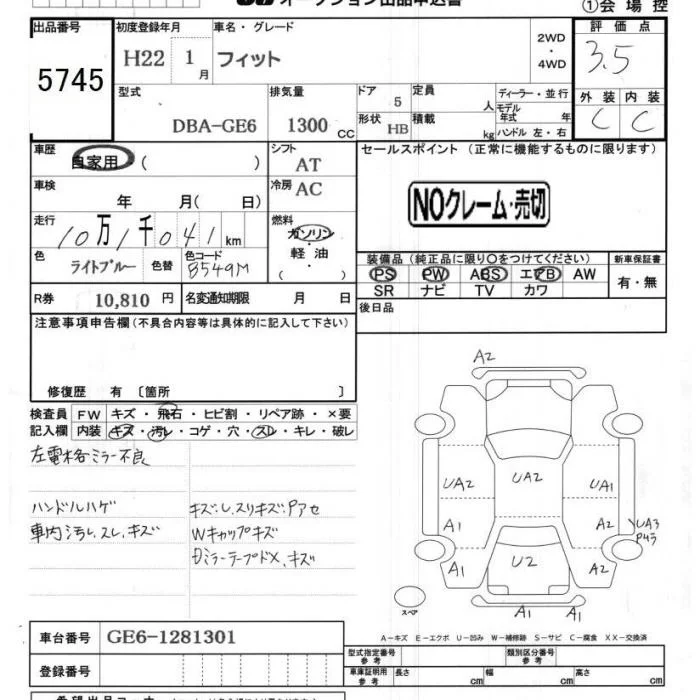 オークション出品申込書
①会場控
出品番号
5745
初度登録年月
H22 1月
車名・グレード
フィット
2WD
・
4WD
評価点
3.5
型式
DBA-GE6
排気量
1300 CC
ドア
5
形状 HB
定員
人
積載
kg
ディーラー・並行
モデル年式 年
ハンドル 左・右
外装 内装
C C
車歴
自家用 ( )
シフト
AT
セールスポイント (正常に機能するものに限ります)
NOクレーム・売切
車検
年 月( 日)
冷房 AC
走行
10万1千041 km
燃料
ガソリン
・
軽油
( )
色
ライトブルー
色替
色コード
B549M
装備品 (純正品に限り○をつけてください)
PS PW ABS エアB AW
SR ナビ TV カワ
新車保証書
有・無
R券 10,810 円
名変通知期限 月 日
後日品
注意事項申告欄 (不具合内容等は具体的に記入して下さい)
修復歴 有 〔箇所 〕
検査員記入欄
FW キズ・飛石・ヒビ割・リペア跡・×要
内装 キズ・汚レ・コゲ・穴・スレ・キレ・破レ
左電格ミラー不良
ハンドルハゲ
車内汚レ、スレ、キズ
キズ、U、スリキズ、Pアセ
Wキャップキズ
ミラーテープドメ、キズ
A2
UA2 UA2 UA1
A1 A2 UA3
P4ラ
A1 U2 A2
A1 A1
スペア
A―キズ E―エクボ U―凹み W―補修跡 S―サビ C―腐食 XX―交換済
車台番号 GE6-1281301
登録番号
型式指定番号 参考
類別区分番号 参考
車庫証明用 参考
長さ cm 幅 cm 高さ cm
希望出品コーナー